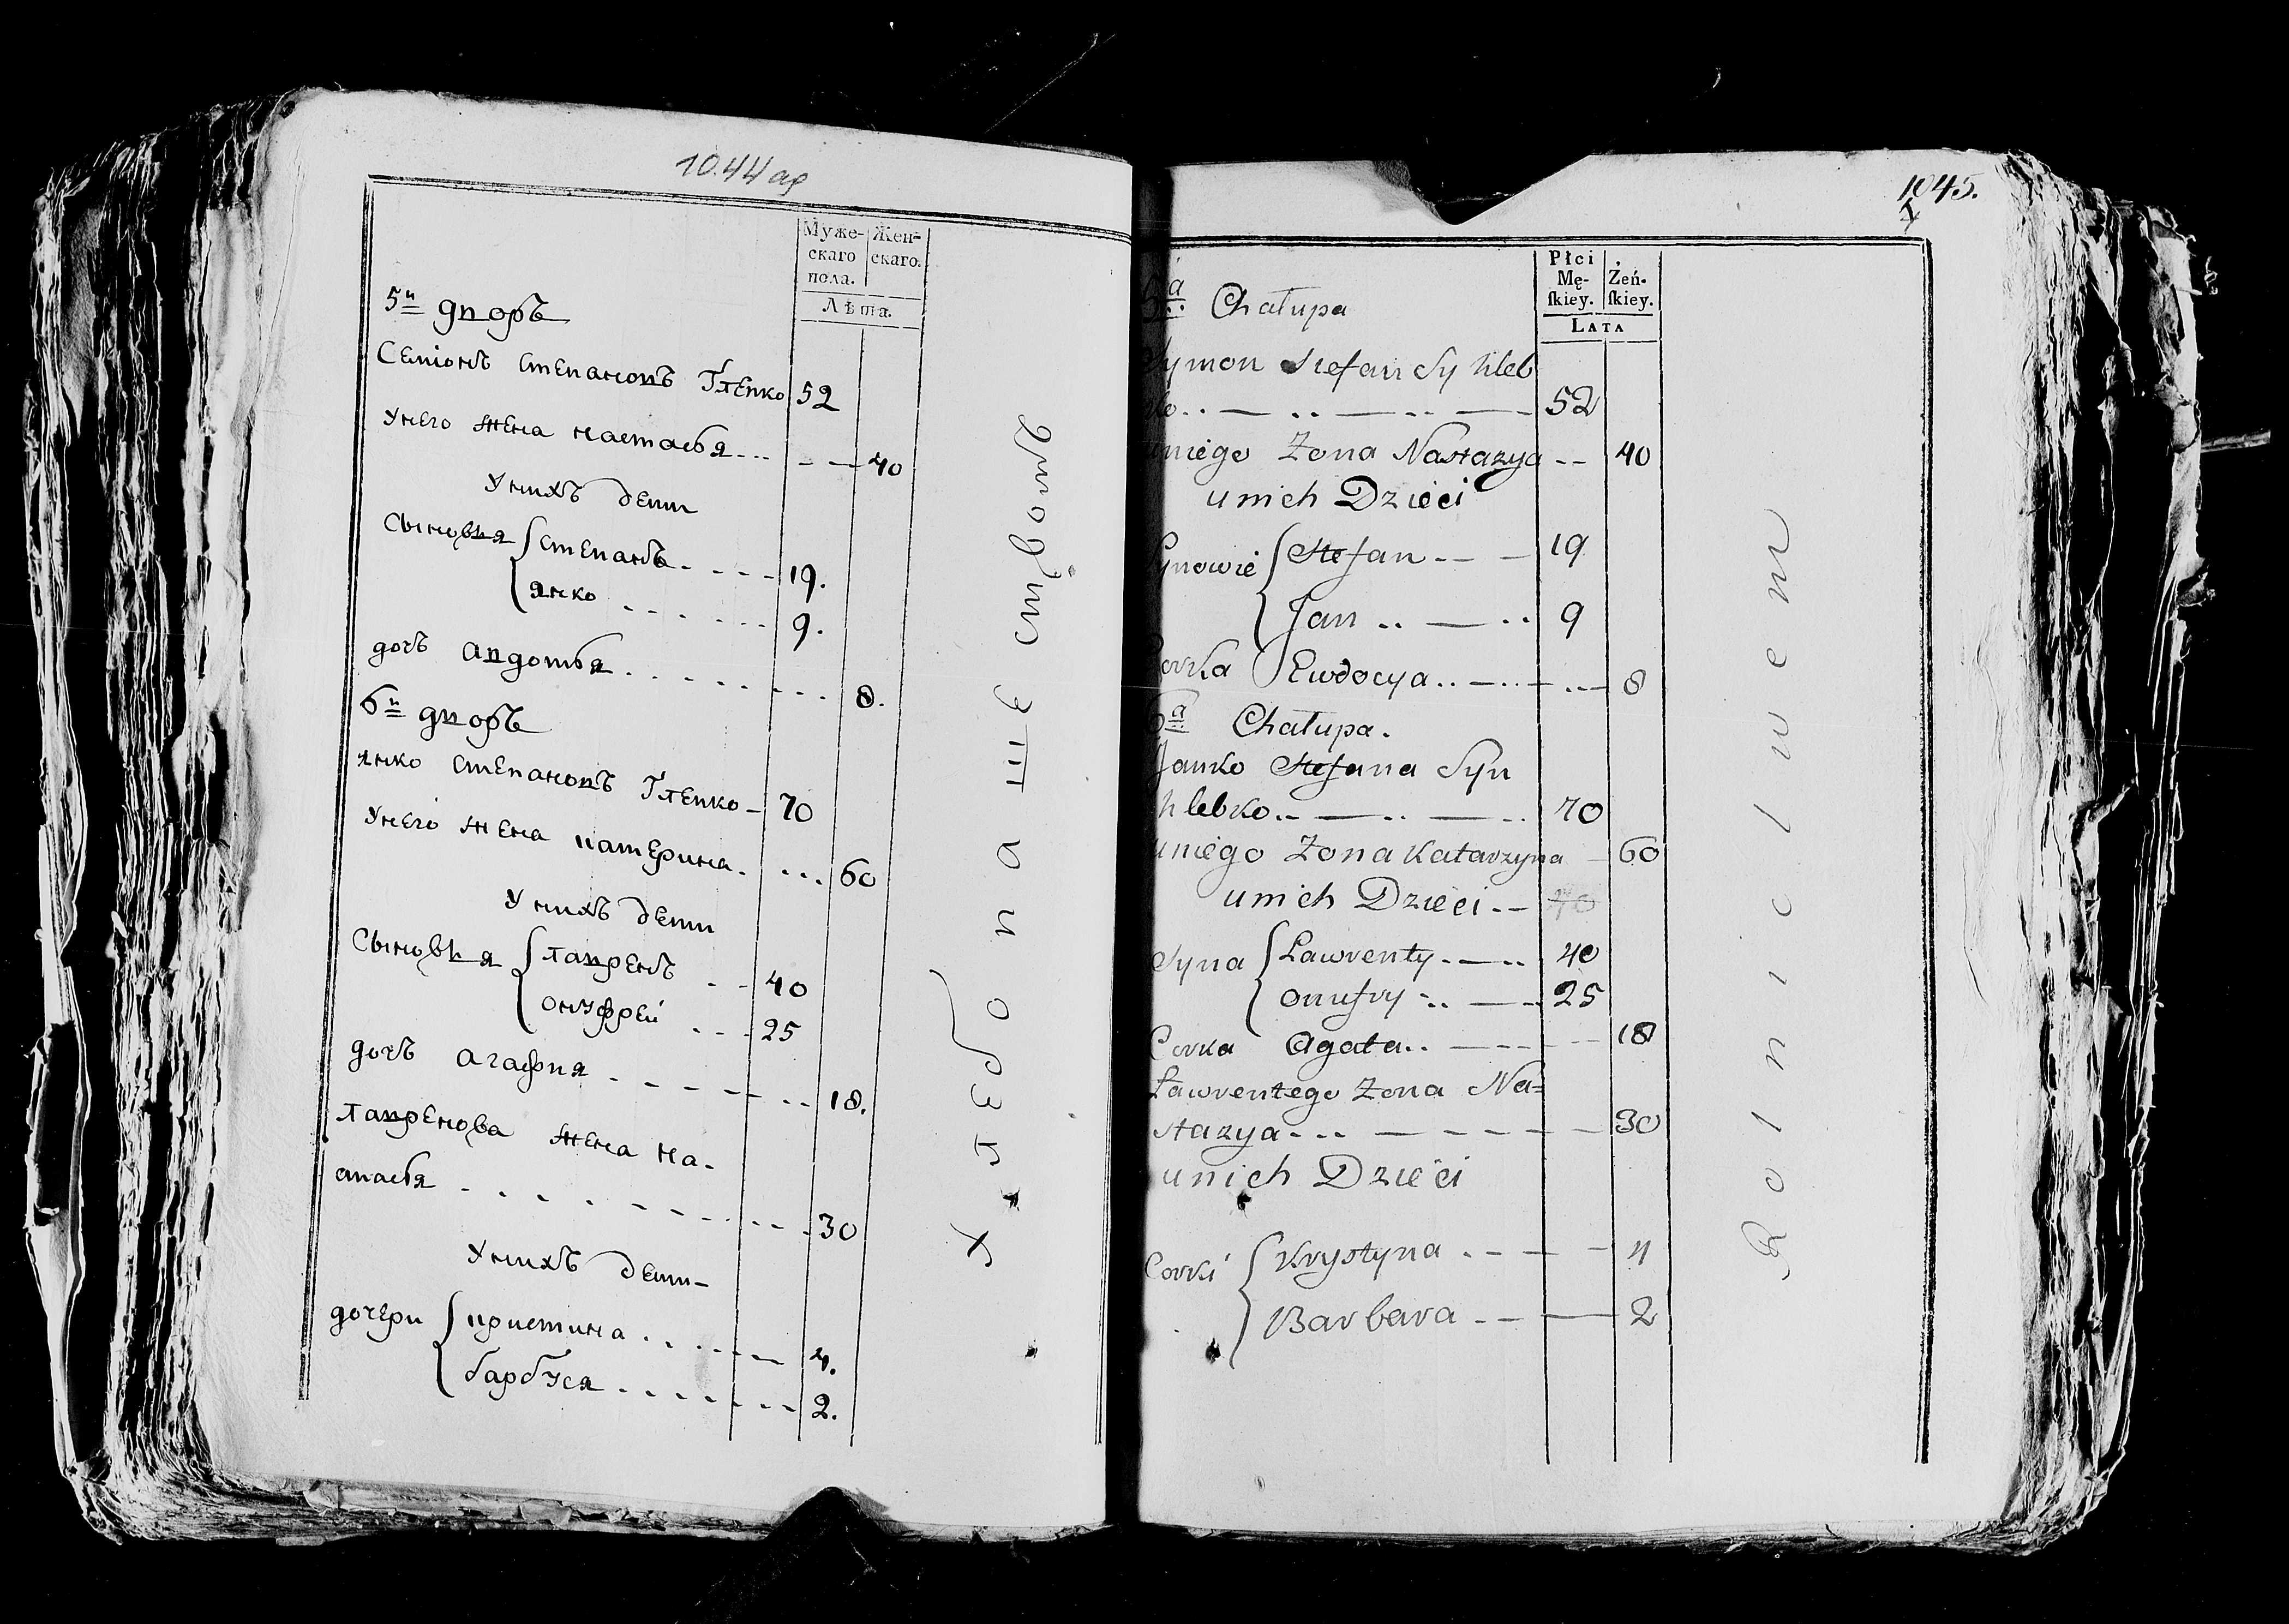 1044 ар
Муже-
скаго
пола.
Жен-
скаго.
Лѣта.
5й дворъ
Семіонъ степановъ Глепко 52
Унего жена настасья... - - 40
Унихъ дети
Сыновья { степанъ - - - - 19.
янко - - - - - 9.
дочь авдотья - - - - - 8.
6й дворъ
янко степановъ Глепко - 70
Унего жена катерина. ... 60
Унихъ дети
Сыновья { лавренъ - - 40
онуфрей - - - 25
дочь агафия - - - - - 18.
лавренова жена на-
стасья - - - - - - 30
Унихъ дети -
дочери { кристина - - - - 4.
барбуся - - - - - 2.
Хлебопашествомъ
1045.
Płci
Mę-
ſkiey.
Żeń-
ſkiey.
LATA
5a Chałupa
Symon Stefan Sy Hleb
ko.. — .. — .. — 52
uniego Zona Nastazya -- 40
unich Dzieci
Synowie { Stefan -- - 19
Jan .. — .. 9
Corka Ewdocya .. — .. — 8
6a Chałupa.
Janko Stefana Syn
hlebko.. — .. — .. 70
uniego Zona Katarzyna - 60
unich Dzieci .. - 40
Syna { Ławrenty . — .. 40
Onufry .. — 25
Corka Agata.. — - - - 18
Ławrentego Zona Na=
stazya - .. — - - - 30
unich Dzieci
Corki { Krystyna . - — - 4
Barbara -- — 2
Rolnictwem